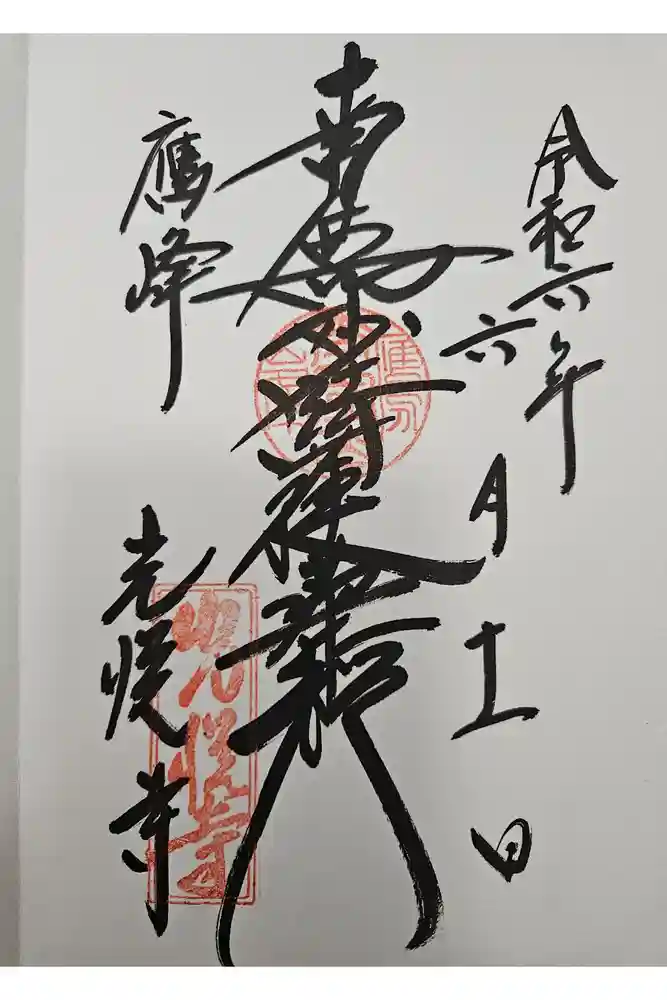 令和六年
六月十一日
南無妙法蓮華経
鷹峰
光悦寺
光悦寺